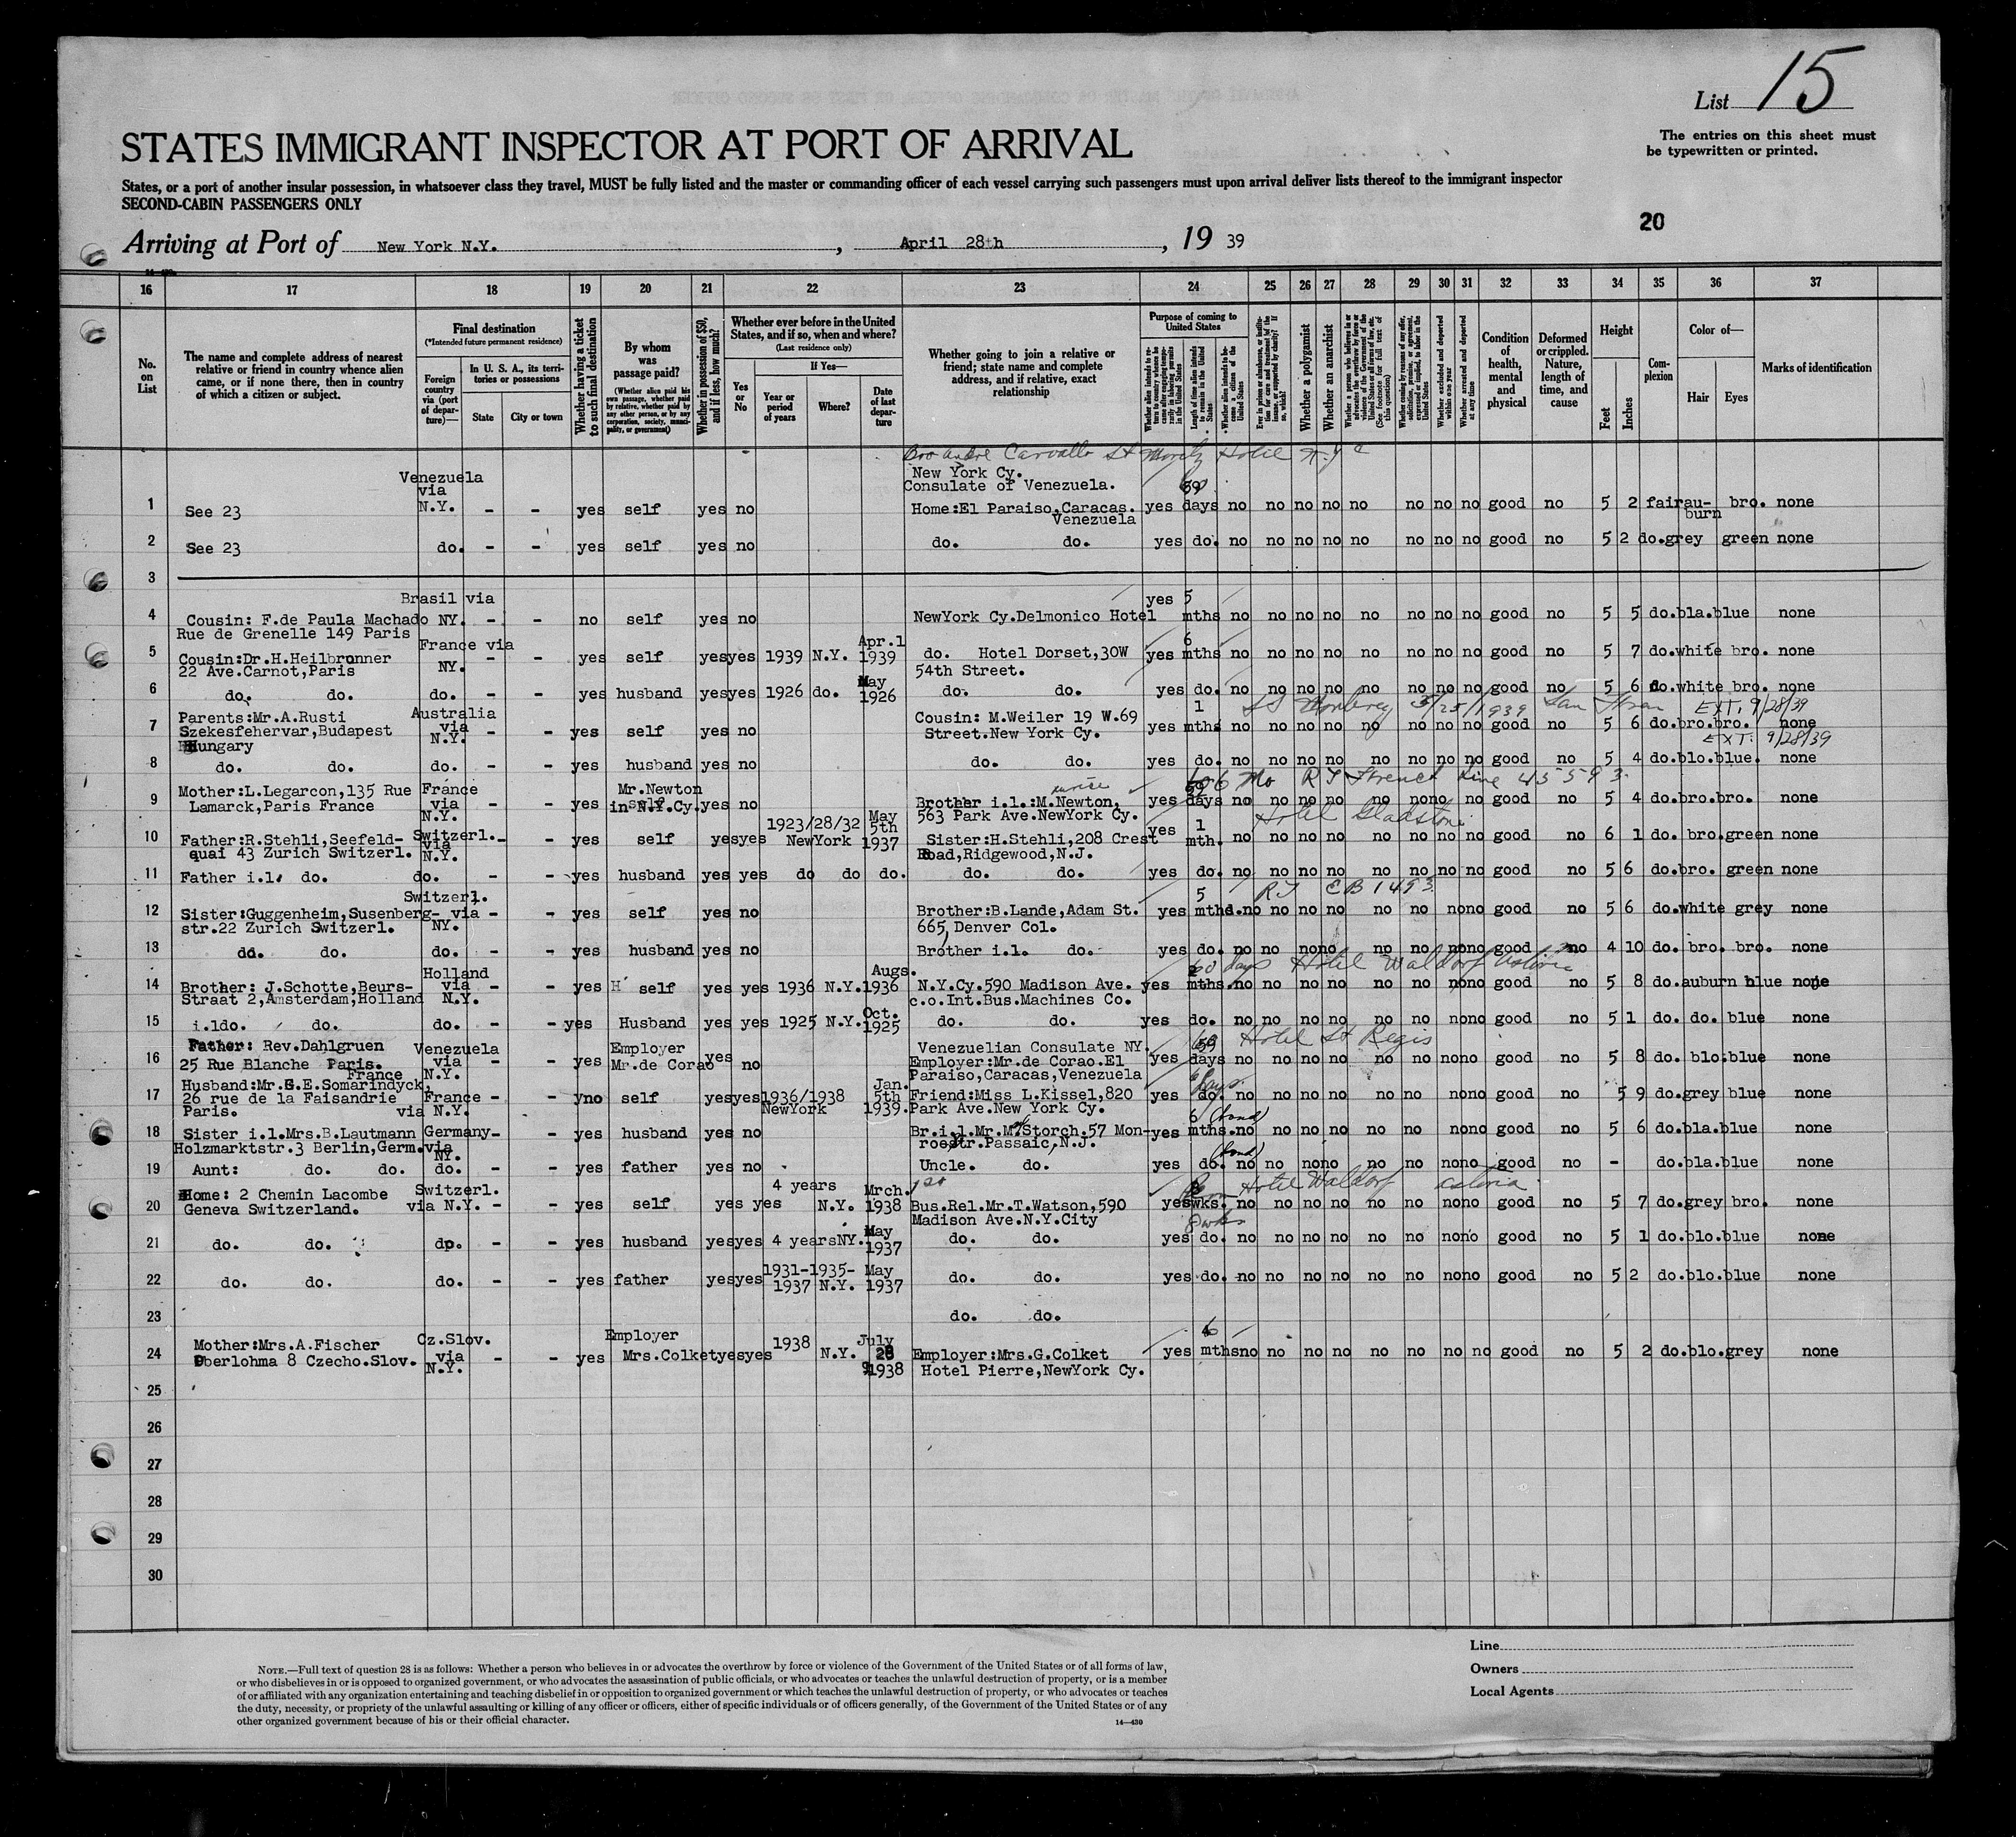 List 15
The entries on this sheet must
be typewritten or printed.
STATES IMMIGRANT INSPECTOR AT PORT OF ARRIVAL
States, or a port of another insular possession, in whatsoever class they travel, MUST be fully listed and the master or commanding officer of each vessel carrying such passengers must upon arrival deliver lists thereof to the immigrant inspector
SECOND-CABIN PASSENGERS ONLY
20
Arriving at Port of New York N.Y. , April 28th , 19 39
16 17 18 19 20 21 22 23 24 25 26 27 28 29 30 31 32 33 34 35 36 37
No. on List
The name and complete address of nearest relative or friend in country whence alien came, or if none there, then in country of which a citizen or subject.
Final destination
(*Intended future permanent residence)
Foreign country via (port of departure)—
In U. S. A., its territories or possessions
State
City or town
Whether having a ticket to such final destination
By whom was passage paid?
(Whether alien paid his own passage, whether paid by relative, whether paid by any other person, or by any corporation, society, municipality, or government)
Whether in possession of $50, and if less, how much?
Whether ever before in the United States, and if so, when and where?
(Last residence only)
Yes or No
If Yes—
Year or period of years
Where?
Date of last departure
Whether going to join a relative or friend; state name and complete address, and if relative, exact relationship
Purpose of coming to United States
Length of time alien intends to remain in the United States
Whether alien intends to become a citizen of the United States
Whether a polygamist
Whether an anarchist
Whether excluded and deported within one year
Whether arrested and deported at any time
Condition of health, mental and physical
Deformed or crippled. Nature, length of time, and cause
Height
Feet
Inches
Complexion
Color of—
Hair
Eyes
Marks of identification
Carvallo St Moritz Hotel N.Y.C
1 See 23 Venezuela via N.Y. - - yes self yes no New York Cy. Consulate of Venezuela. Home:El Paraiso,Caracas. Venezuela yes days no no no no no no no no good no 5 2 fair auburn bro. none
2 See 23 do. - - yes self yes no do. do. yes do. no no no no no no no no good no 5 2 do. grey green none
3
4 Cousin: F.de Paula Machado Rue de Grenelle 149 Paris Brasil via NY. - - no self yes no NewYork Cy.Delmonico Hotel yes 5 mths no no no no no no no no good no 5 5 do. bla. blue none
5 Cousin:Dr.H.Heilbronner 22 Ave.Carnot,Paris France via NY. - - yes self yes yes 1939 N.Y. Apr.1 1939 do. Hotel Dorset,30W 54th Street. yes 6 mths no no no no no no no no good no 5 7 do. white bro. none
6 do. do. do. - - yes husband yes yes 1926 do. May 1926 do. do. yes do. no no no no no no no no good no 5 6 do. white bro. none
5/25/1939 San Fran EXT. 9/28/39
7 Parents:Mr.A.Rusti Szekesfehervar,Budapest Hungary Australia via N.Y. - - yes self yes no Cousin: M.Weiler 19 W.69 Street.New York Cy. yes 1 mths no no no no no no no no good no 5 6 do. bro. bro. none
EXT. 9/28/39
8 do. do. do. - - yes husband yes no do. do. yes do. no no no no no no no no good no 5 4 do. blo. blue. none
6 Mo RT French Line 45593
9 Mother:L.Legarcon,135 Rue Lamarck,Paris France France via N.Y. - - yes Mr.Newton in N.Y.Cy. yes no Brother i.l.:M.Newton, 563 Park Ave.NewYork Cy. yes days no no no no no no no no good no 5 4 do. bro. bro. none
Hotel Gladstone
10 Father:R.Stehli,Seefeld- quai 43 Zurich Switzerl. Switzerl. via N.Y. - - yes self yes yes 1923/28/32 NewYork May 5th 1937 Sister:H.Stehli,208 Crest Road,Ridgewood,N.J. yes 1 mth. no no no no no no no no good no 6 1 do. bro. green none
11 Father i.l. do. do. - - yes husband yes yes do do do. do. do. yes do. no no no no no no no no good no 5 6 do. bro. green none
12 Sister:Guggenheim,Susenberg- str.22 Zurich Switzerl. Switzerl. via NY. - - yes self yes no Brother:B.Lande,Adam St. 665, Denver Col. yes 5 mths. no no no no no no no no good no 5 6 do. white grey none
13 do. do. do. - - yes husband yes no Brother i.l. do. yes do. no no no no no no no no good no 4 10 do. bro. bro. none
60 days Hotel Waldorf Astoria
14 Brother: J.Schotte,Beurs- Straat 2,Amsterdam,Holland Holland via N.Y. - - yes self yes yes 1936 N.Y. Augs. 1936 N.Y.Cy.590 Madison Ave. c.o.Int.Bus.Machines Co. yes mths. no no no no no no no no good no 5 8 do. auburn blue none
15 i.l do. do. do. - - yes Husband yes yes 1925 N.Y. Oct. 1925 do. do. yes do. no no no no no no no no good no 5 1 do. do. blue none
Hotel St Regis
16 Father: Rev.Dahlgruen 25 Rue Blanche Paris. France Venezuela via N.Y. - - yes Employer Mr.de Corao yes no Venezuelian Consulate NY. Employer:Mr.de Corao.El Paraiso,Caracas,Venezuela yes 59 days no no no no no no no no good no 5 8 do. blo. blue none
17 Husband:Mr.G.E.Somarindyck, 26 rue de la Faisandrie Paris. France via N.Y. - - no self yes yes 1936/1938 NewYork Jan. 5th 1939. Friend:Miss L.Kissel,820 Park Ave.New York Cy. yes do. days no no no no no no no no good no 5 9 do. grey blue none
18 Sister i.l.Mrs.B.Lautmann Holzmarktstr.3 Berlin,Germ. Germany via NY. - - yes husband yes no Br.i.l.Mr.M.Storch.57 Mon- roestr.Passaic,N.J. yes 6 mths. (bond) no no no no no no no no good no 5 6 do. bla. blue none
19 Aunt: do. do. do. - - yes father yes no Uncle. do. yes do. (bond) no no no no no no no no good no - do. bla. blue none
Hotel Waldorf Astoria
20 Home: 2 Chemin Lacombe Geneva Switzerland. Switzerl. via N.Y. - - yes self yes yes 4 years N.Y. Mrch. 1938 Bus.Rel.Mr.T.Watson,590 Madison Ave.N.Y.City yes wks. no no no no no no no no good no 5 7 do. grey bro. none
21 do. do. do. - - yes husband yes yes 4 years NY. May 1937 do. do. yes do. 8 wks no no no no no no no no good no 5 1 do. blo. blue none
22 do. do. do. - - yes father yes yes 1931-1935- 1937 N.Y. May 1937 do. do. yes do. no no no no no no no no good no 5 2 do. blo. blue none
23 do. do.
24 Mother:Mrs.A.Fischer Oberlohma 8 Czecho.Slov. Cz.Slov. via N.Y. - - yes Employer Mrs.Colket yes yes 1938 N.Y. July 28 1938 Employer:Mrs.G.Colket Hotel Pierre,NewYork Cy. yes 6 mths no no no no no no no no good no 5 2 do. blo. grey none
25
26
27
28
29
30
Line
Owners
Local Agents
NOTE.—Full text of question 28 is as follows: Whether a person who believes in or advocates the overthrow by force or violence of the Government of the United States or of all forms of law,
or who disbelieves in or is opposed to organized government, or who advocates the assassination of public officials, or who advocates or teaches the unlawful destruction of property, or is a member
of or affiliated with any organization entertaining and teaching disbelief in or opposition to organized government or which teaches the unlawful destruction of property, or who advocates or teaches
the duty, necessity, or propriety of the unlawful assaulting or killing of any officer or officers, either of specific individuals or of officers generally, of the Government of the United States or of any
other organized government because of his or their official character.
14—430